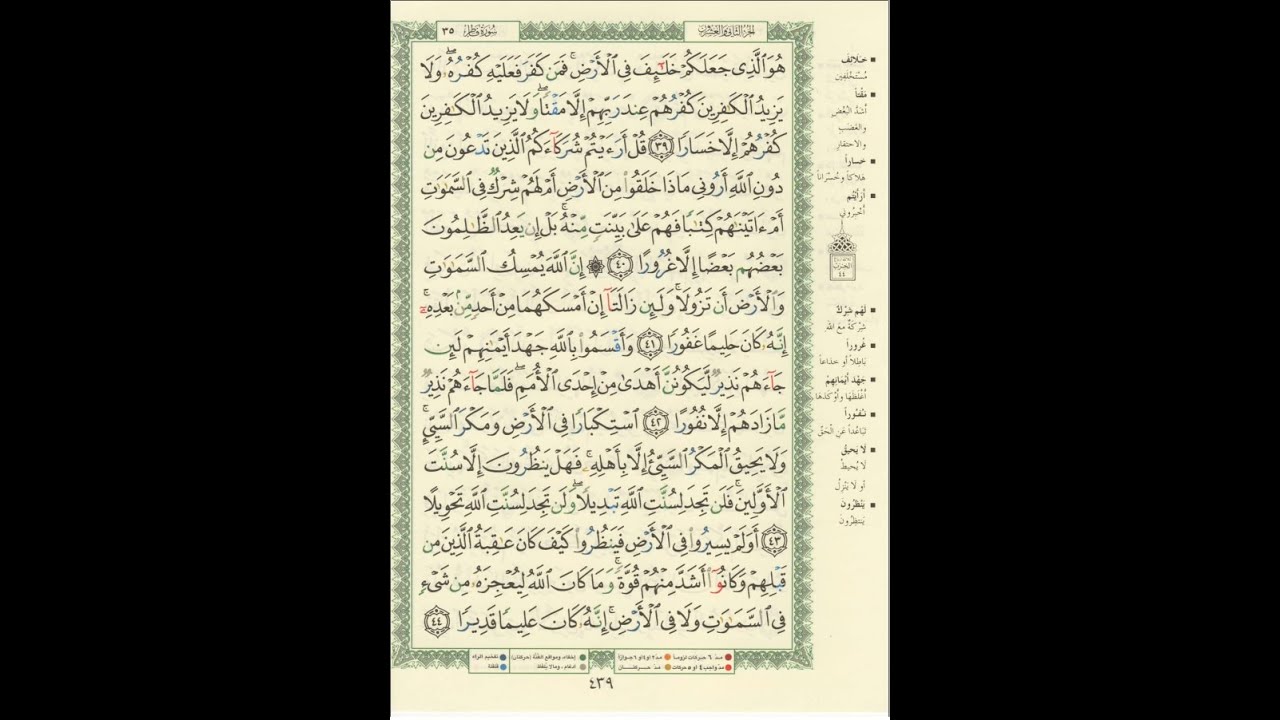 الجزء الثاني والعشرون
سورة فاطر ٣٥
هُوَ ٱلَّذِى جَعَلَكُمْ خَلَٰٓئِفَ فِى ٱلْأَرْضِ ۚ فَمَن كَفَرَ فَعَلَيْهِ كُفْرُهُۥ ۖ وَلَا
يَزِيدُ ٱلْكَٰفِرِينَ كُفْرُهُمْ عِندَ رَبِّهِمْ إِلَّا مَقْتًا ۖ وَلَا يَزِيدُ ٱلْكَٰفِرِينَ
كُفْرُهُمْ إِلَّا خَسَارًا ٣٩ قُلْ أَرَءَيْتُمْ شُرَكَآءَكُمُ ٱلَّذِينَ تَدْعُونَ مِن
دُونِ ٱللَّهِ أَرُونِى مَاذَا خَلَقُوا۟ مِنَ ٱلْأَرْضِ أَمْ لَهُمْ شِرْكٌ فِى ٱلسَّمَٰوَٰتِ
أَمْ ءَاتَيْنَٰهُمْ كِتَٰبًا فَهُمْ عَلَىٰ بَيِّنَتٍ مِّنْهُ ۚ بَلْ إِن يَعِدُ ٱلظَّٰلِمُونَ
بَعْضُهُم بَعْضًا إِلَّا غُرُورًا ٤٠ ۞ إِنَّ ٱللَّهَ يُمْسِكُ ٱلسَّمَٰوَٰتِ
وَٱلْأَرْضَ أَن تَزُولَا ۚ وَلَئِن زَالَتَآ إِنْ أَمْسَكَهُمَا مِنْ أَحَدٍ مِّنۢ بَعْدِهِۦٓ ۚ
إِنَّهُۥ كَانَ حَلِيمًا غَفُورًا ٤١ وَأَقْسَمُوا۟ بِٱللَّهِ جَهْدَ أَيْمَٰنِهِمْ لَئِن
جَآءَهُمْ نَذِيرٌ لَّيَكُونُنَّ أَهْدَىٰ مِنْ إِحْدَى ٱلْأُمَمِ ۖ فَلَمَّا جَآءَهُمْ نَذِيرٌ
مَّا زَادَهُمْ إِلَّا نُفُورًا ٤٢ ٱسْتِكْبَارًا فِى ٱلْأَرْضِ وَمَكْرَ ٱلسَّيِّئِ ۚ
وَلَا يَحِيقُ ٱلْمَكْرُ ٱلسَّيِّئُ إِلَّا بِأَهْلِهِۦ ۚ فَهَلْ يَنظُرُونَ إِلَّا سُنَّتَ
ٱلْأَوَّلِينَ ۚ فَلَن تَجِدَ لِسُنَّتِ ٱللَّهِ تَبْدِيلًا ۖ وَلَن تَجِدَ لِسُنَّتِ ٱللَّهِ تَحْوِيلًا
٤٣ أَوَلَمْ يَسِيرُوا۟ فِى ٱلْأَرْضِ فَيَنظُرُوا۟ كَيْفَ كَانَ عَٰقِبَةُ ٱلَّذِينَ مِن
قَبْلِهِمْ وَكَانُوٓا۟ أَشَدَّ مِنْهُمْ قُوَّةً ۚ وَمَا كَانَ ٱللَّهُ لِيُعْجِزَهُۥ مِن شَىْءٍ
فِى ٱلسَّمَٰوَٰتِ وَلَا فِى ٱلْأَرْضِ ۚ إِنَّهُۥ كَانَ عَلِيمًا قَدِيرًا ٤٤
خلائف
مُسْتَخْلَفِين
مَقْتاً
أشدَّ البُغْضِ
والغَضَب
والاحتقار
خساراً
هَلاكاً وخُسْرَاناً
أرَأيْتُم
أخْبِرُوني
الحزب
٤٤
لهم شرْكٌ
شِرْكَةٌ مَعَ الله
غُروراً
بَاطِلاً أو خداعاً
جَهْدَ أيْمَانِهِمْ
أغْلَظَهَا وأوْكَدَهَا
نُفُوراً
تَبَاعُداً عَنِ الْحَقِّ
لا يَحيقُ
لا يُحيطُ
أو لا يَنْزِلُ
يَنْظُرُونَ
يَنتَظِرُونَ
مدّ ٦ حركات لزوماً
مدّ ٢ أو ٤ أو ٦ جوازاً
إخفاء، ومواقع الغُنَّة (حركتان)
تفخيم الراء
مدّ واجب ٤ أو ٥ حركات
مدّ حركتان
إدغام، وما لا يُلفَظ
قلقلة
٤٣٩